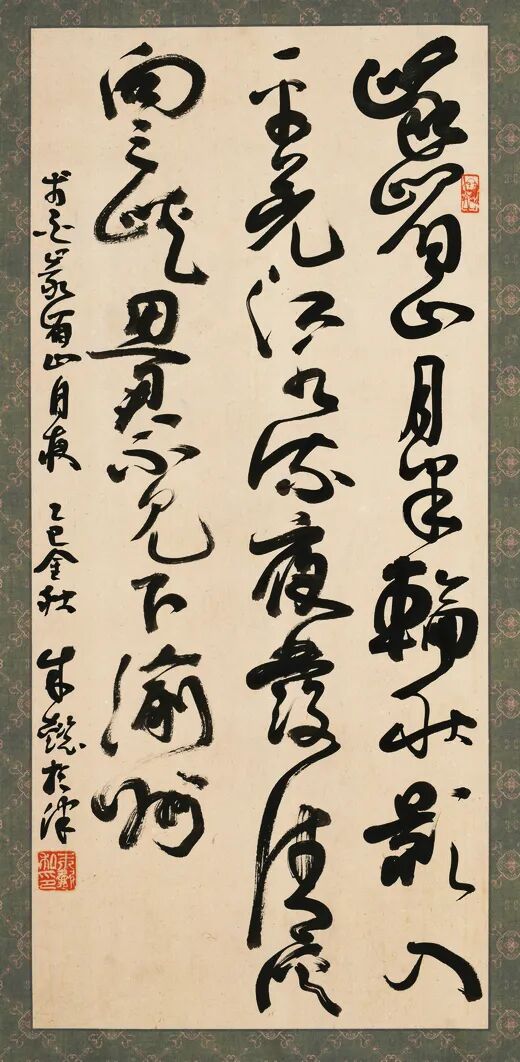 峨眉山月半輪秋影入
平羌江水流夜發清溪
向三峽思君不見下渝州
李白峨眉山月 乙巳金秋 朱於津